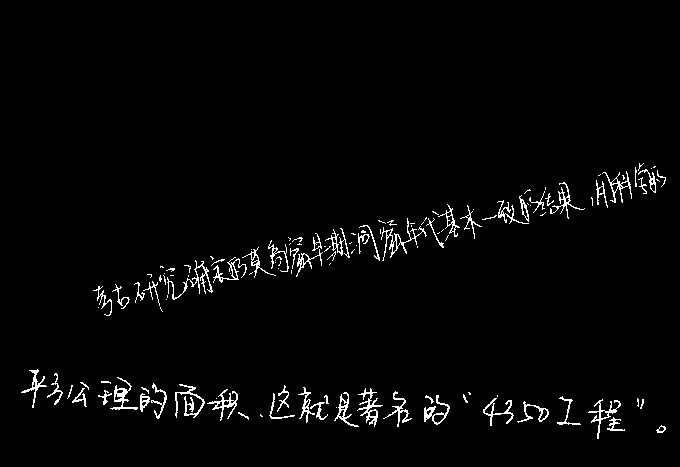 考古研究确定的莫高窟早期洞窟年代基本一致的结果，用科学的
平方公理的面积、这就是著名的“4350工程”。